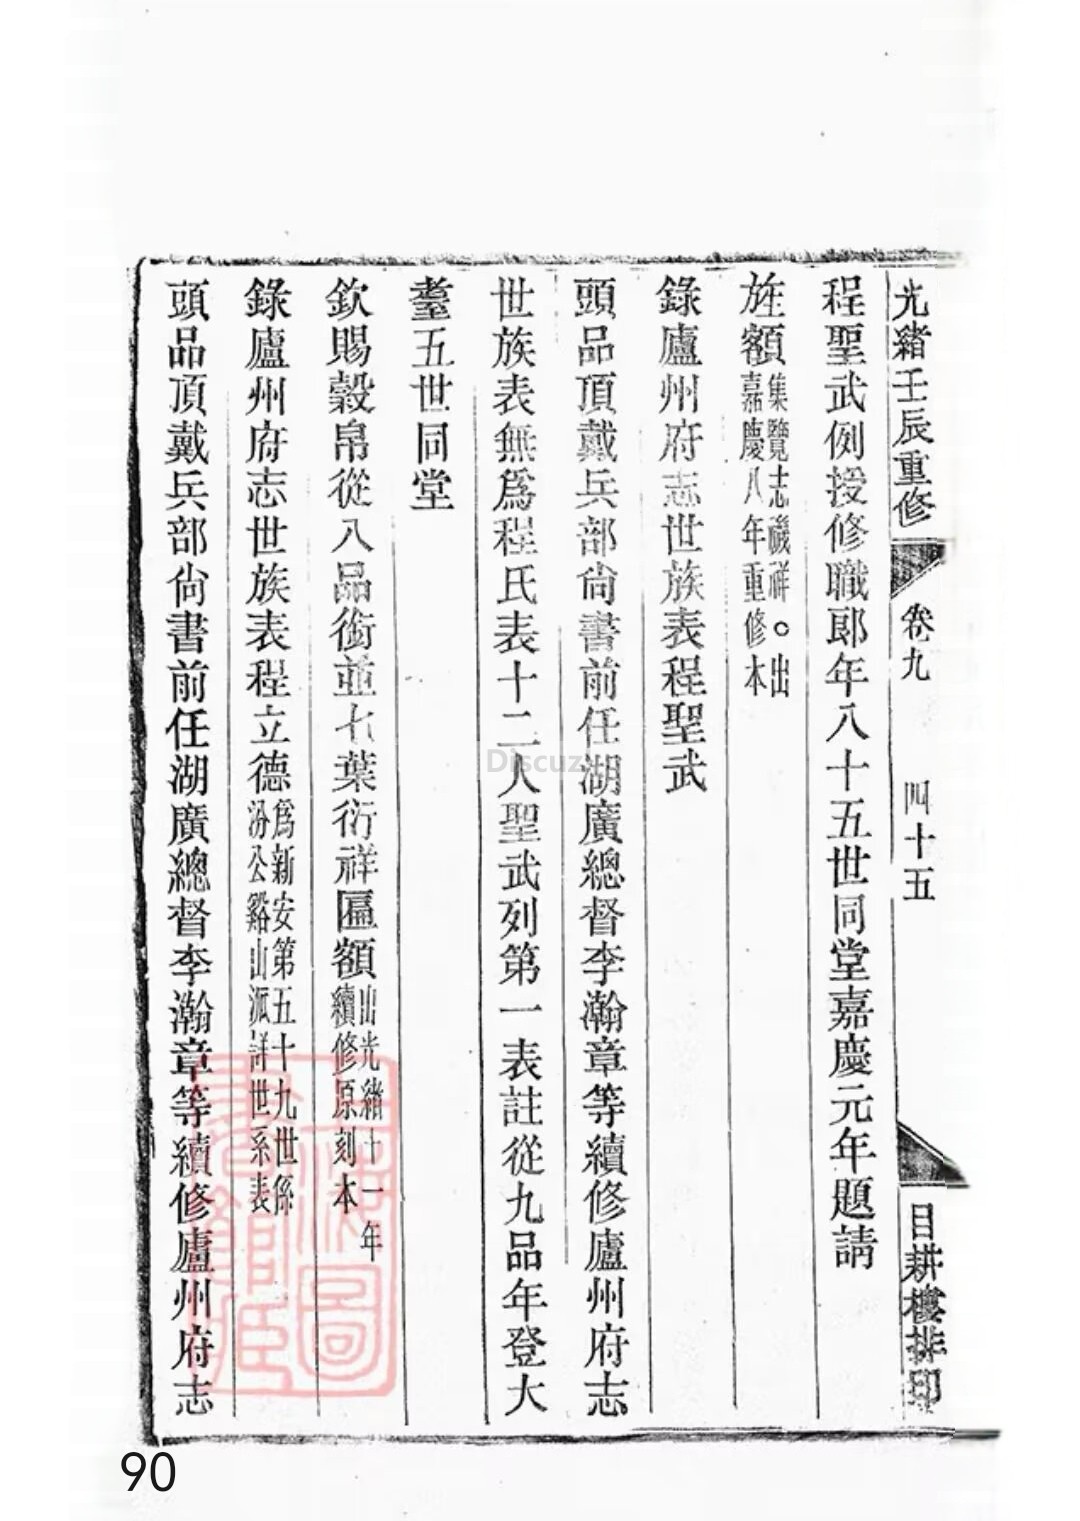 光緒壬辰重修 卷九 四十五 目耕樓排印
程聖武例授修職郎年八十五世同堂嘉慶元年題請
旌額集覽志禨祥。出嘉慶八年重修本
錄廬州府志世族表程聖武
頭品頂戴兵部尙書前任湖廣總督李瀚章等續修廬州府志
世族表無爲程氏表十二人聖武列第一表註從九品年登大
耋五世同堂
欽賜縠帛從八品銜並七葉衍祥匾額出光緒十一年續修原刻本
錄廬州府志世族表程立德爲新安第五十九世係汾公谿山派詳世系表
頭品頂戴兵部尙書前任湖廣總督李瀚章等續修廬州府志
上海圖書館藏
Discuz
90